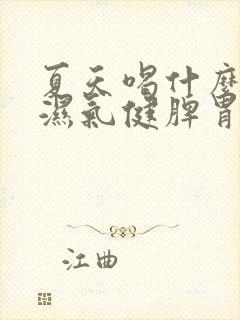 夏天喝什麼
濕氣健脾胃
江曲